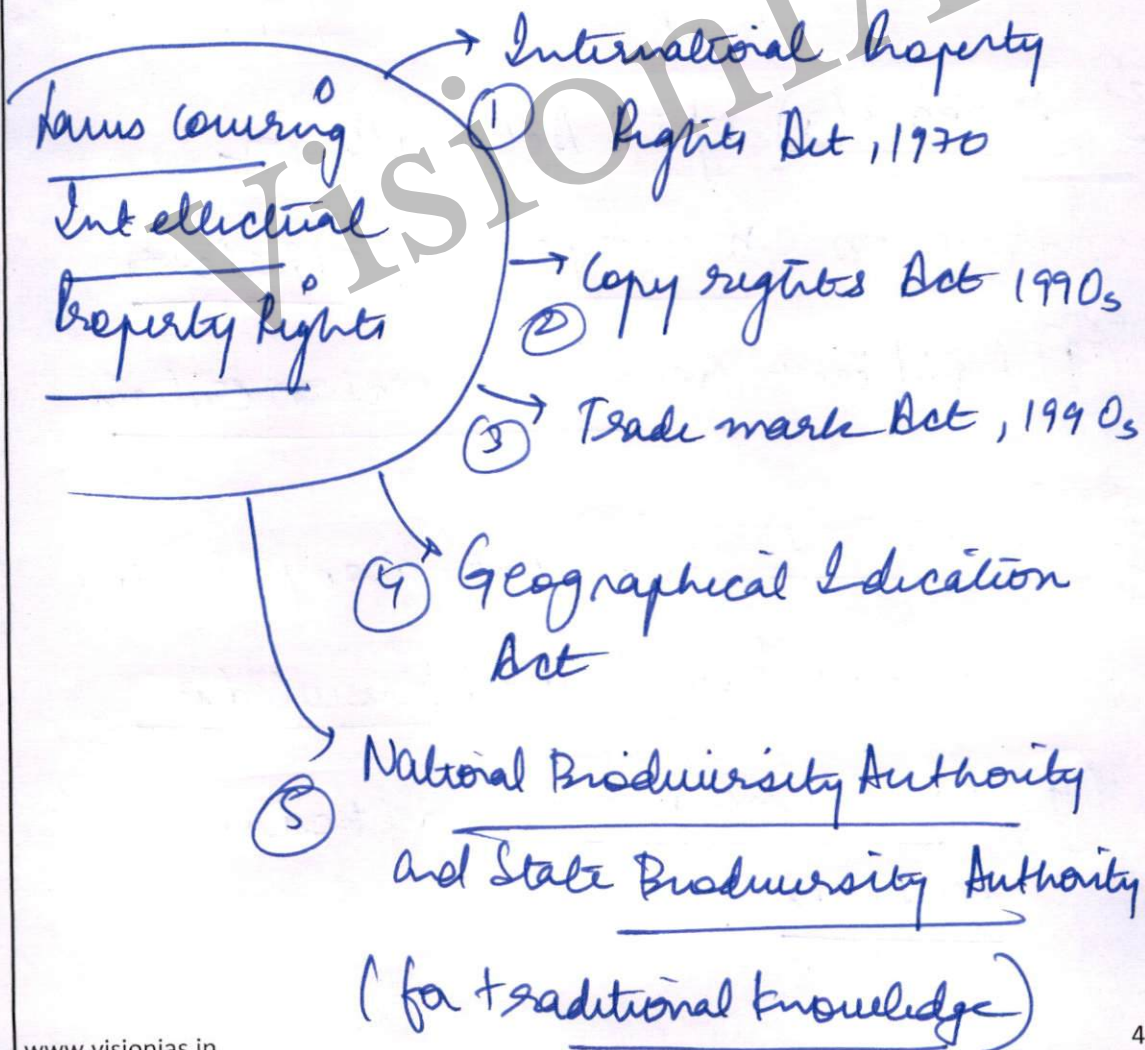 Laws covering
Intellectual
Property Rights
① International Property
Rights Act, 1970
② Copy rights Act 1990s
③ Trade mark Act, 1990s
④ Geographical Idication
Act
⑤ National Biodiversity Authority
and State Biodiversity Authority
(for traditional knowledge)
www.visionias.in
4
VisionIA